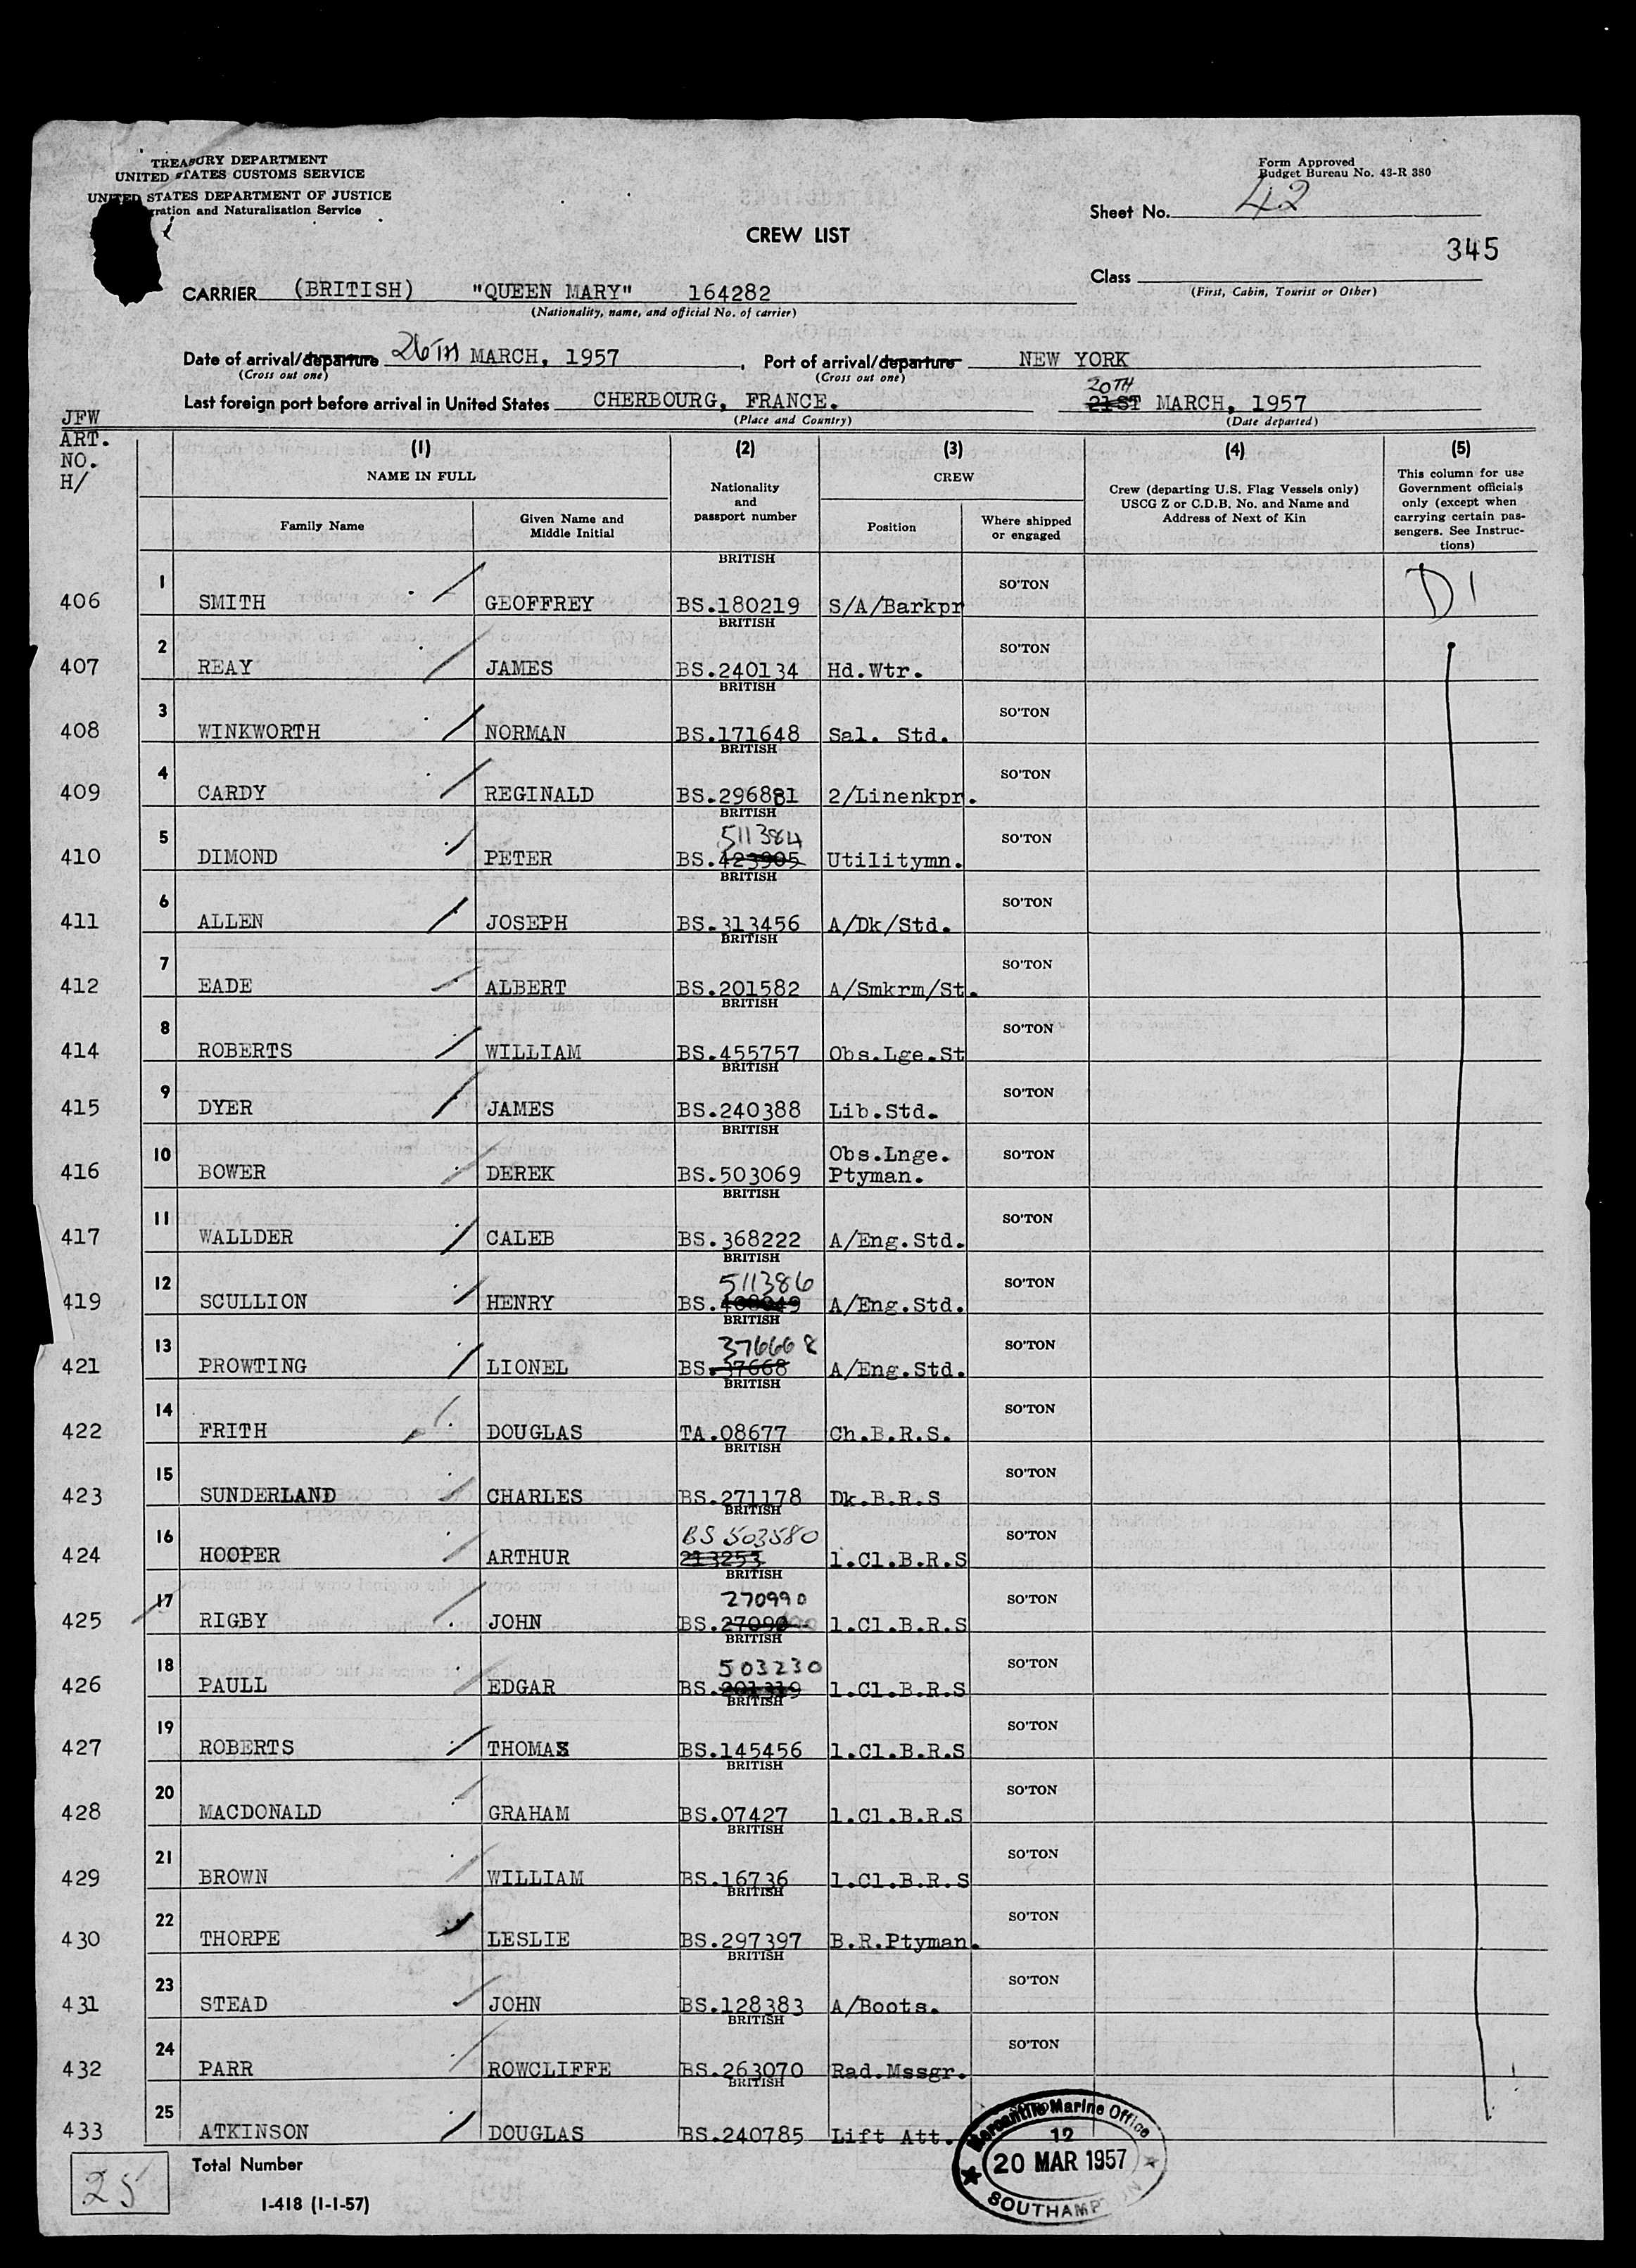 TREASURY DEPARTMENT
UNITED STATES CUSTOMS SERVICE
UNITED STATES DEPARTMENT OF JUSTICE
ration and Naturalization Service
Form Approved
Budget Bureau No. 43-R 380
Sheet No. 42
CREW LIST
345
Class
(First, Cabin, Tourist or Other)
CARRIER (BRITISH) "QUEEN MARY" 164282
(Nationality, name, and official No. of carrier)
Date of arrival/departure 26TH MARCH, 1957, Port of arrival/departure NEW YORK
(Cross out one) (Cross out one)
20TH
Last foreign port before arrival in United States CHERBOURG, FRANCE. 21ST MARCH, 1957
(Place and Country) (Date departed)
JFW
ART.
NO.
H/
(1) (2) (3) (4) (5)
NAME IN FULL
Nationality
and
passport number
CREW
Crew (departing U.S. Flag Vessels only)
USCG Z or C.D.B. No. and Name and
Address of Next of Kin
This column for use
Government officials
only (except when
carrying certain pas-
sengers. See Instruc-
tions)
Family Name
Given Name and
Middle Initial
Position
Where shipped
or engaged
BRITISH
406 1 SMITH GEOFFREY BS.180219 S/A/Barkpr SO'TON D1
BRITISH
407 2 REAY JAMES BS.240134 Hd.Wtr. SO'TON
BRITISH
408 3 WINKWORTH NORMAN BS.171648 Sal. Std. SO'TON
BRITISH
409 4 CARDY REGINALD BS.296881 2/Linenkpr. SO'TON
BRITISH
511384
410 5 DIMOND PETER BS.423905 Utilitymn. SO'TON
BRITISH
411 6 ALLEN JOSEPH BS.313456 A/Dk/Std. SO'TON
BRITISH
412 7 EADE ALBERT BS.201582 A/Smkrm/St. SO'TON
BRITISH
414 8 ROBERTS WILLIAM BS.455757 Obs.Lge.St SO'TON
BRITISH
415 9 DYER JAMES BS.240388 Lib.Std. SO'TON
BRITISH
Obs.Lnge.
416 10 BOWER DEREK BS.503069 Ptyman. SO'TON
BRITISH
417 11 WALLDER CALEB BS.368222 A/Eng.Std. SO'TON
BRITISH
511386
419 12 SCULLION HENRY BS. A/Eng.Std. SO'TON
BRITISH
376668
421 13 PROWTING LIONEL BS.37668 A/Eng.Std. SO'TON
BRITISH
422 14 FRITH DOUGLAS TA.08677 Ch.B.R.S. SO'TON
BRITISH
423 15 SUNDERLAND CHARLES BS.271178 Dk.B.R.S SO'TON
BRITISH
BS 503580
424 16 HOOPER ARTHUR 213253 1.Cl.B.R.S SO'TON
BRITISH
270990
425 17 RIGBY JOHN BS.27090 1.Cl.B.R.S SO'TON
BRITISH
503230
426 18 PAULL EDGAR BS. 1.Cl.B.R.S SO'TON
BRITISH
427 19 ROBERTS THOMAS BS.145456 1.Cl.B.R.S SO'TON
BRITISH
428 20 MACDONALD GRAHAM BS.07427 1.Cl.B.R.S SO'TON
BRITISH
429 21 BROWN WILLIAM BS.16736 1.Cl.B.R.S SO'TON
BRITISH
430 22 THORPE LESLIE BS.297397 B.R.Ptyman. SO'TON
BRITISH
431 23 STEAD JOHN BS.128383 A/Boots. SO'TON
BRITISH
432 24 PARR ROWCLIFFE BS.263070 Rad.Mssgr. SO'TON
BRITISH
433 25 ATKINSON DOUGLAS BS.240785 Lift Att.
25 Total Number
I-418 (1-1-57)
Mercantile Marine Office
12
20 MAR 1957
SOUTHAMP